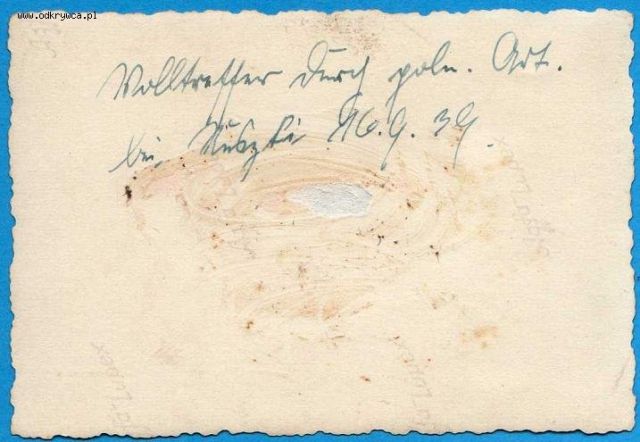 www.odkrywca.pl
Volltreffer durch poln. Art.
bei 16.9.39.